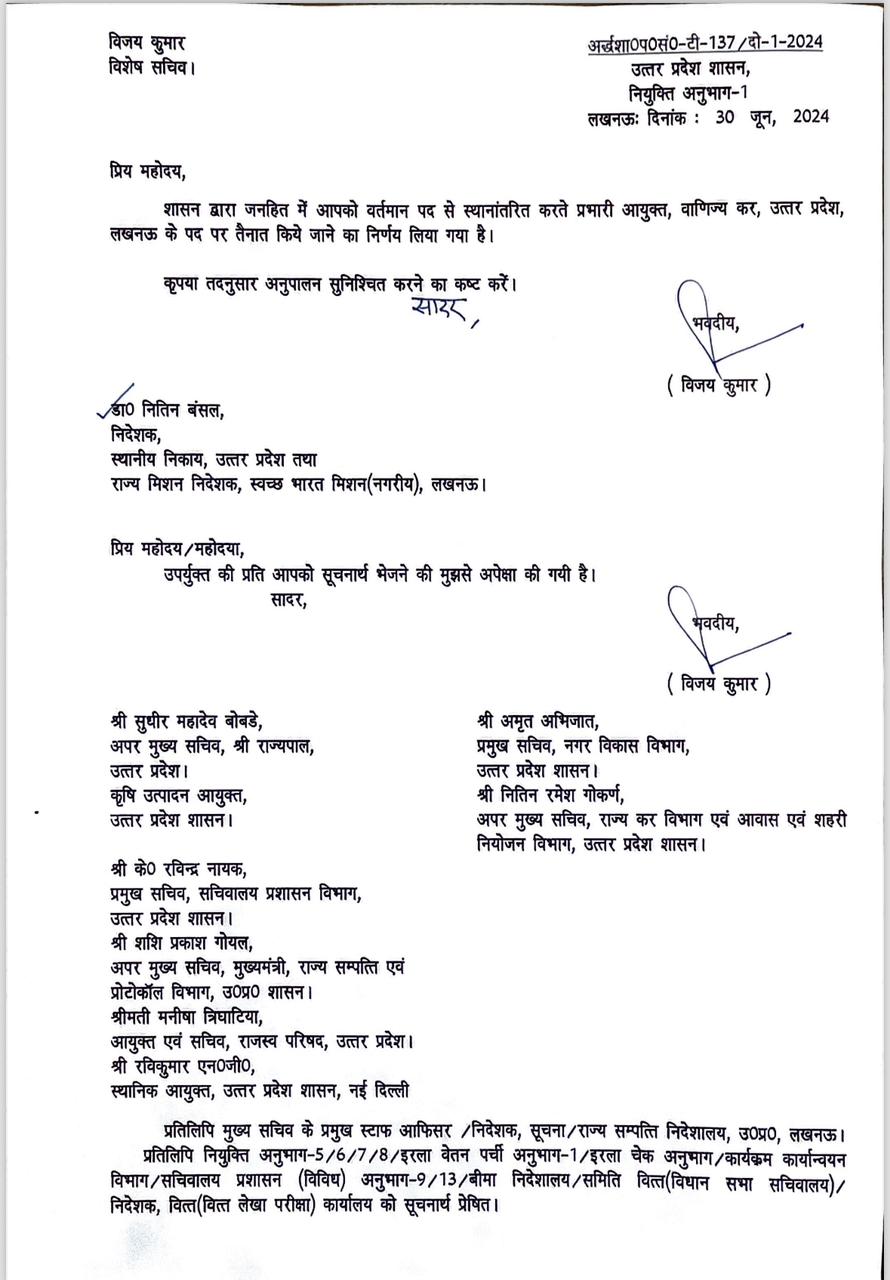 विजय कुमार
विशेष सचिव।
अर्द्धशा0प0सं0-टी-137/दो-1-2024
उत्तर प्रदेश शासन,
नियुक्ति अनुभाग-1
लखनऊः दिनांक : 30 जून, 2024
प्रिय महोदय,
शासन द्वारा जनहित में आपको वर्तमान पद से स्थानांतरित करते प्रभारी आयुक्त, वाणिज्य कर, उत्तर प्रदेश,
लखनऊ के पद पर तैनात किये जाने का निर्णय लिया गया है।
कृपया तदनुसार अनुपालन सुनिश्चित करने का कष्ट करें।
सादर,
भवदीय,
( विजय कुमार )
डा0 नितिन बंसल,
निदेशक,
स्थानीय निकाय, उत्तर प्रदेश तथा
राज्य मिशन निदेशक, स्वच्छ भारत मिशन(नगरीय), लखनऊ।
प्रिय महोदय/महोदया,
उपर्युक्त की प्रति आपको सूचनार्थ भेजने की मुझसे अपेक्षा की गयी है।
सादर,
भवदीय,
( विजय कुमार )
श्री सुधीर महादेव बोबडे,
अपर मुख्य सचिव, श्री राज्यपाल,
उत्तर प्रदेश।
कृषि उत्पादन आयुक्त,
उत्तर प्रदेश शासन।
श्री अमृत अभिजात,
प्रमुख सचिव, नगर विकास विभाग,
उत्तर प्रदेश शासन।
श्री नितिन रमेश गोकर्ण,
अपर मुख्य सचिव, राज्य कर विभाग एवं आवास एवं शहरी
नियोजन विभाग, उत्तर प्रदेश शासन।
श्री के0 रविन्द्र नायक,
प्रमुख सचिव, सचिवालय प्रशासन विभाग,
उत्तर प्रदेश शासन।
श्री शशि प्रकाश गोयल,
अपर मुख्य सचिव, मुख्यमंत्री, राज्य सम्पत्ति एवं
प्रोटोकॉल विभाग, उ0प्र0 शासन।
श्रीमती मनीषा त्रिघाटिया,
आयुक्त एवं सचिव, राजस्व परिषद, उत्तर प्रदेश।
श्री रविकुमार एन0जी0,
स्थानिक आयुक्त, उत्तर प्रदेश शासन, नई दिल्ली
प्रतिलिपि मुख्य सचिव के प्रमुख स्टाफ आफिसर /निदेशक, सूचना/राज्य सम्पत्ति निदेशालय, उ0प्र0, लखनऊ।
प्रतिलिपि नियुक्ति अनुभाग-5/6/7/8/इरला वेतन पर्ची अनुभाग-1/इरला चेक अनुभाग/कार्यक्रम कार्यान्वयन
विभाग/सचिवालय प्रशासन (विविध) अनुभाग-9/13/बीमा निदेशालय/समिति वित्त(विधान सभा सचिवालय)/
निदेशक, वित्त(वित्त लेखा परीक्षा) कार्यालय को सूचनार्थ प्रेषित।